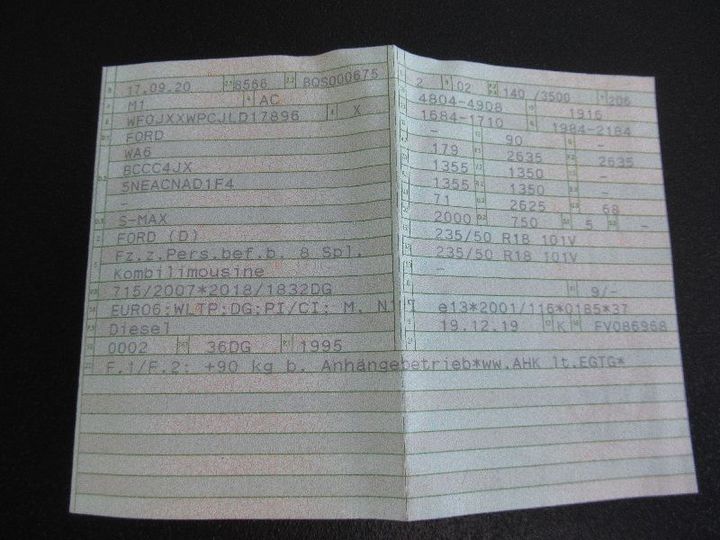 17.09.20 8566 BQS000675
M1 AC
WF0JXXWPCJLD17896 X
FORD
WA6
BCCC4JX
5NEACNAD1F4
-
S-MAX
FORD (D)
Fz.z.Pers.bef.b. 8 Spl.
Kombilimousine
715/2007*2018/1832DG
EURO6;WLTP;DG;PI/CI; M, N1 I
Diesel
0002 36DG 1995
2 02 140 /3500 206
4804-4908 1916
1684-1710 1984-2184
- 90 -
179 2635 2635
1355 1350 -
1355 1350 -
71 2625 68
2000 750 5 -
235/50 R18 101V
235/50 R18 101V
-
9/-
e13*2001/116*0185*37
19.12.19 K FY086968
F.1/F.2: +90 kg b. Anhängebetrieb*ww.AHK lt.EGTG*